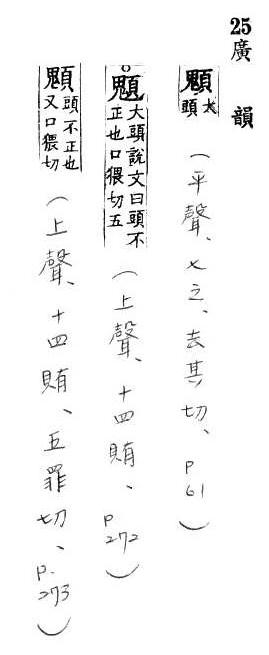 25廣韻
䫥 大頭（平聲、七之、去其切、P61）
䫥 大頭說文曰頭不正也口猥切五（上聲、十四賄、P272）
䫥 頭不正也又口猥切（上聲、十四賄、五罪切、P.273）